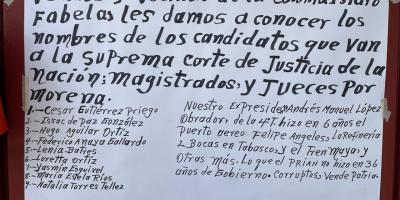 Fabelas les damos a conocer los
nombres de los candidatos que van
a la suprema corte de Justicia de la
nación; magistrados, y Jueces Por
morena.
1.- Cesar Gutiérrez Priego
2.- Issac de Paz González
3.- Hugo Aguilar Ortiz
4.- Federico Anaya Gallardo
5.- Lenia Batres
6.- Loretta Ortiz
7.- Yasmin Esquivel
8.- Maria Estela Rios
9.- Natalia Torres Tellez
Nuestro Expresidente Andrés Manuel López
Obrador, de la 4T. hizo en 6 años el
Puerto aereo Felipe Angeles, la Refineria
2 Bocas en Tabasco, y el Tren maya; y
Otras más. Lo que el PRIAN no hizo en 36
años de Gobierno. Corruptos, Vende Patria.